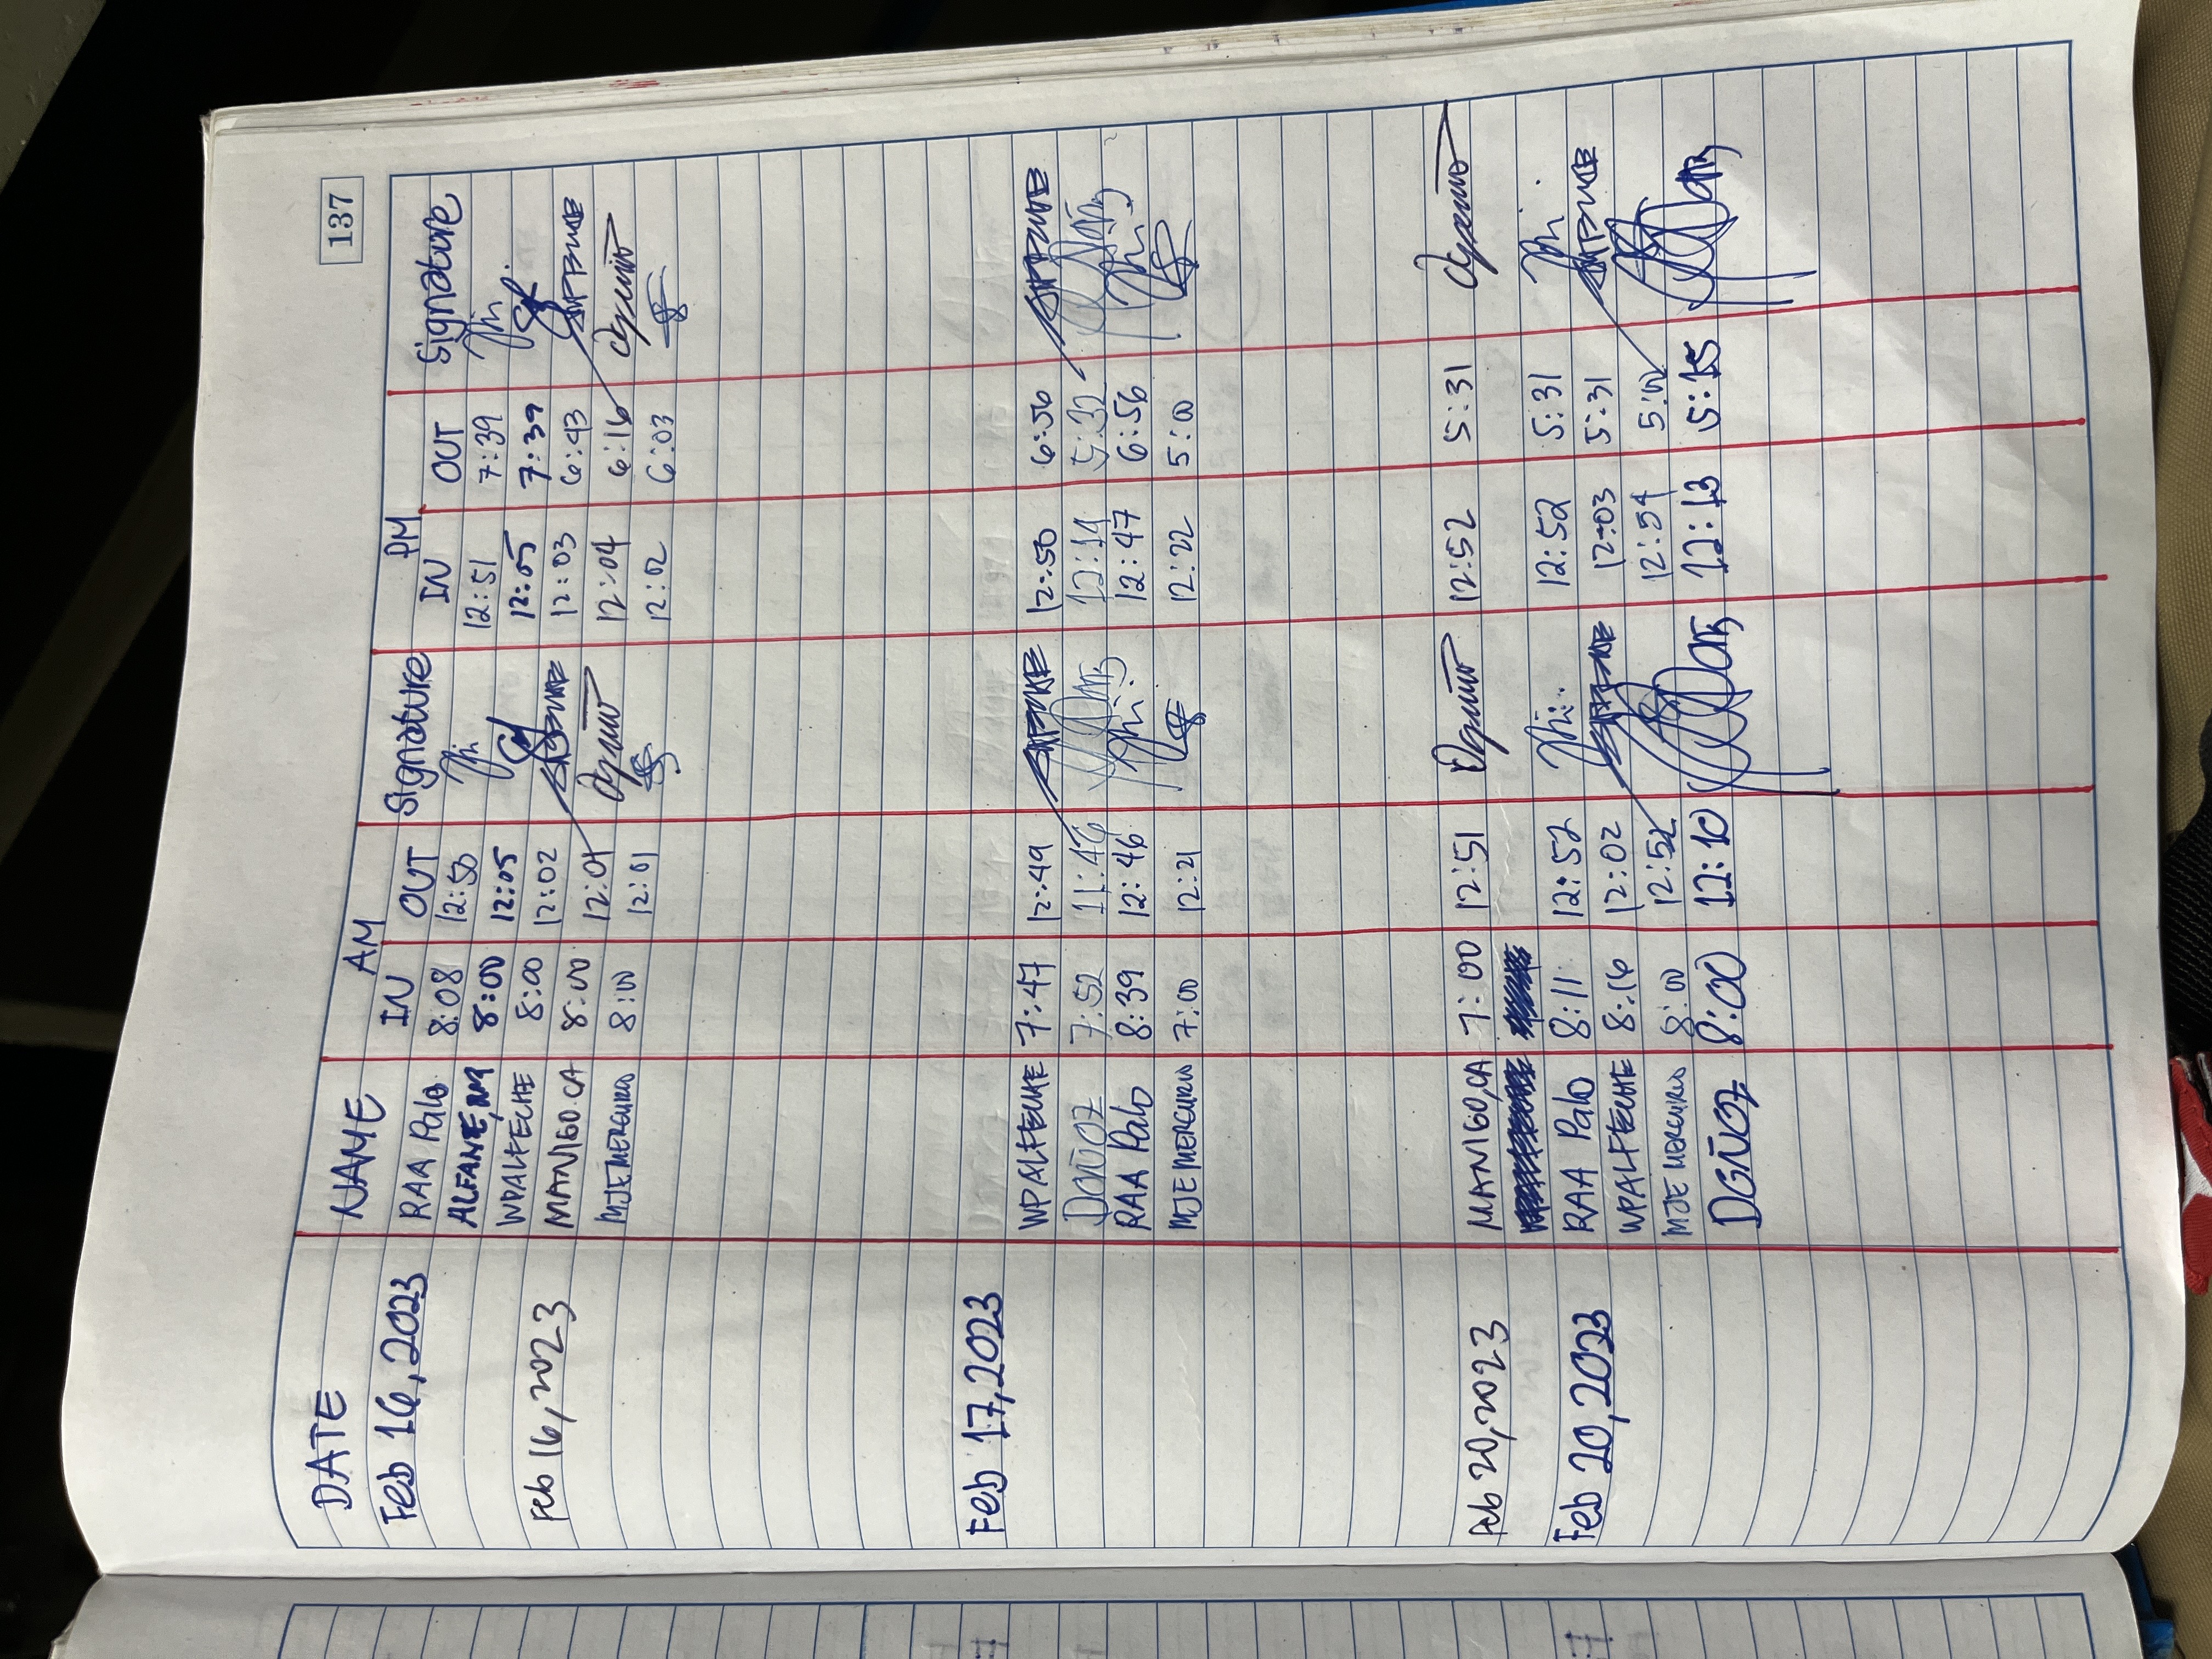 137
AM PM
DATE NAME IN OUT Signature IN OUT Signature
Feb 16, 2023 RAA Palo 8:08 12:50 12:51 7:39
ALFANTE, NM 8:00 12:05 12:05 7:39
WPALFECHE 8:00 12:02 12:03 6:43
Feb 16, 2023 MANIGO. CA 8:00 12:01 12:04 6:16
MJEMERCURIO 8:00 12:01 12:02 6:03
Feb 17, 2023 WPALFECHE 7:47 12:49 12:50 6:56
DOÑOZ 7:52 11:46 12:14 5:32
RAA Palo 8:39 12:46 12:47 6:56
MJEMERCURIO 7:00 12:21 12:22 5:00
Feb 20, 2023 MANIGO, CA 7:00 12:51 12:52 5:31
Feb 20, 2023 RAA Palo 8:11 12:52 12:52 5:31
WPALFECHE 8:16 12:02 12:03 5:31
MJE MERCURIO 8:00 12:52 12:54 5:00
DOÑOZ 8:00 12:10 12:13 5:15